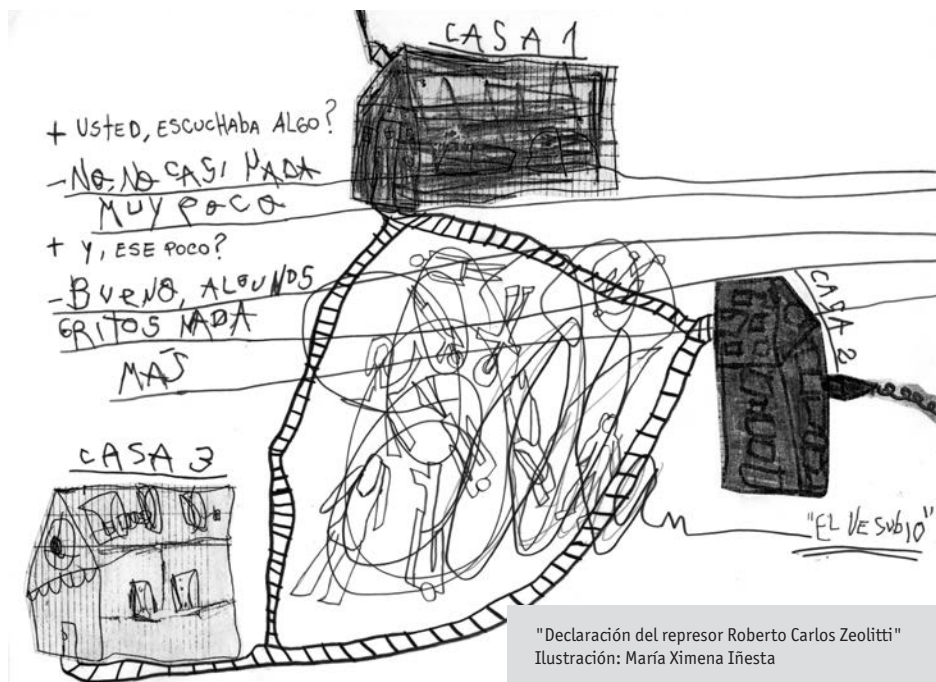 CASA 1
+ USTED, ESCUCHABA ALGO?
- NO, NO CASI NADA
MUY POCO
+ Y, ESE POCO?
- BUENO, ALGUNOS
GRITOS NADA
MÁS
CASA 2
CASA 3
"EL VESUBIO"
"Declaración del represor Roberto Carlos Zeolitti"
Ilustración: María Ximena Iñesta